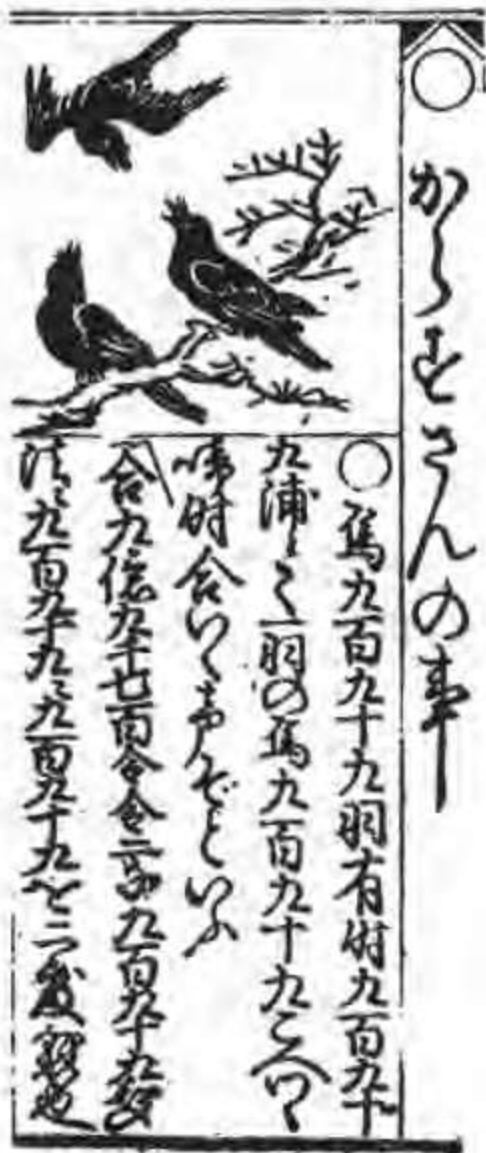 からすさんの事
〇烏九百九十九羽有時九百九十
九浦にて一羽の烏九百九十九こゑつゝ
鳴時合いく声ぞといふ
合九億九千七百令令二千九百九十九声
法に九百九十九に九百九十九を二度懸也